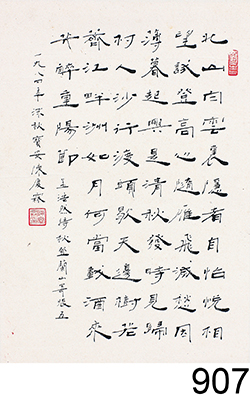 北山白雲裏隱者自怡悅相
望試登高心隨雁飛滅愁因
薄暮起興是清秋發時見歸
村人沙行渡頭歇天邊樹若
薺江畔洲如月何當載酒來
共醉重陽節 孟浩然詩秋登蘭山寄張五
一九八四年深秋寶安
907